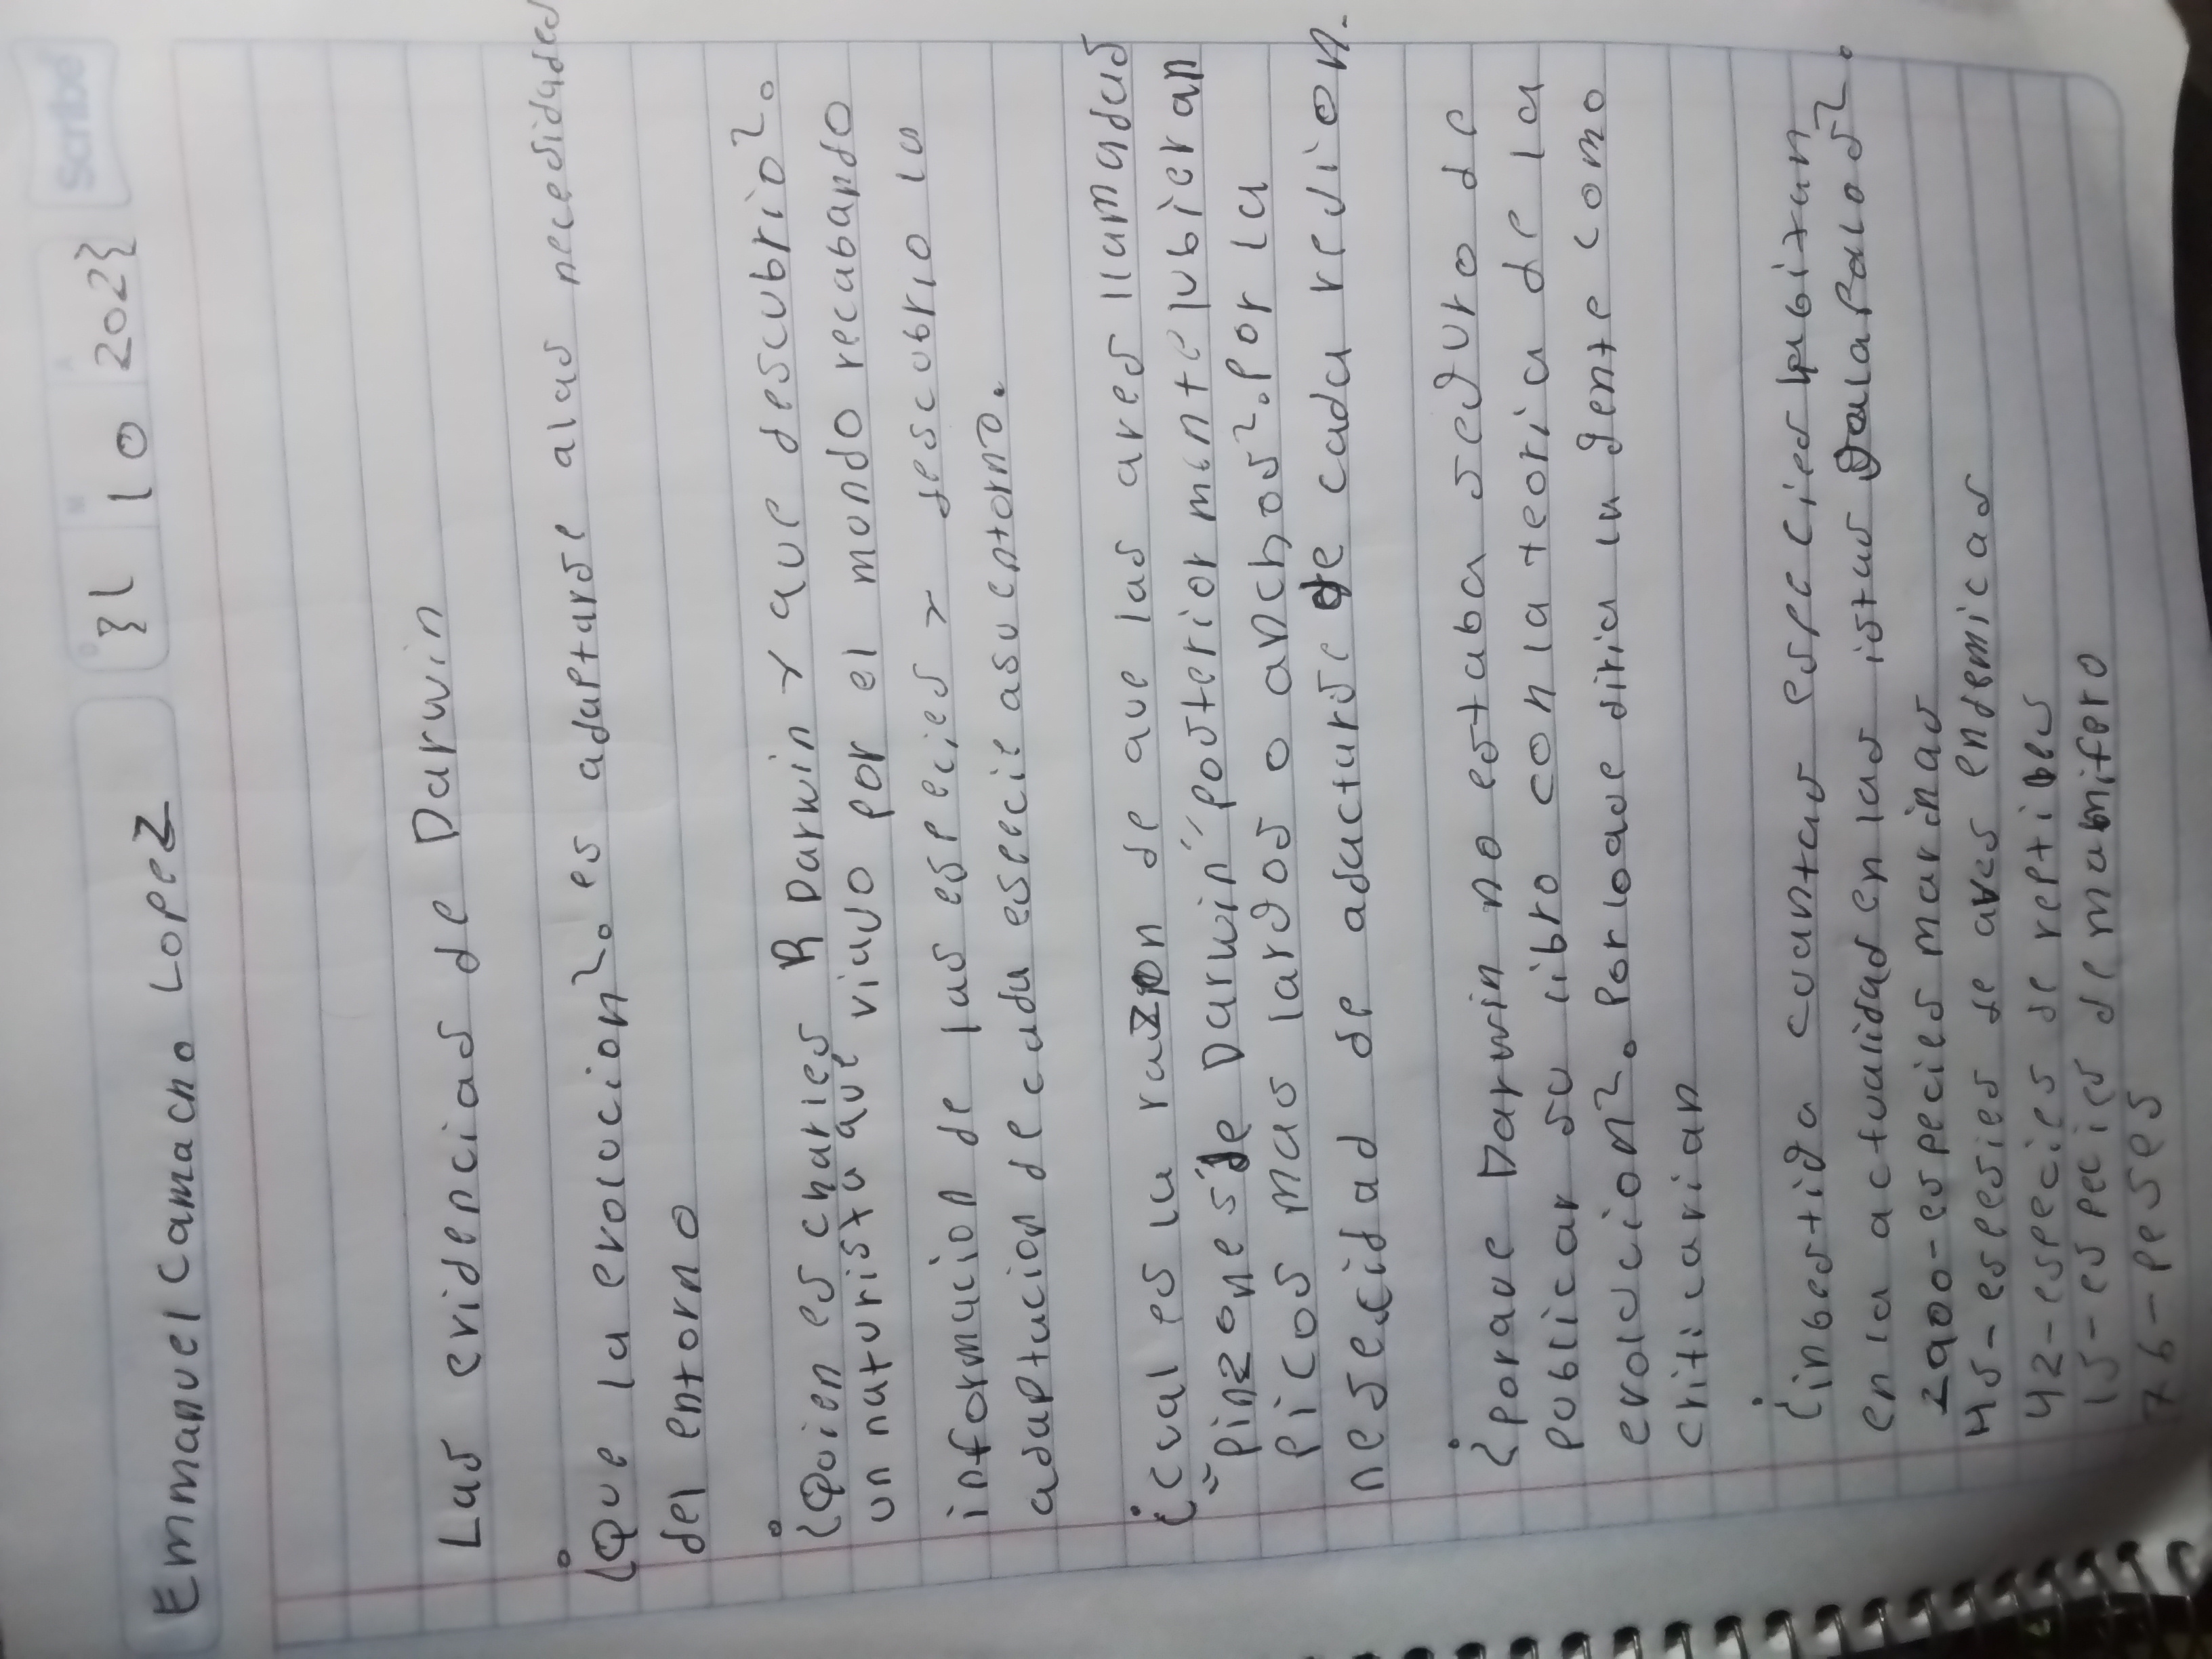 Emmanuel Camacho Lopez
D M A
31 10 2023
Scribe
Las evidencias de Darwin
¿Que la evolucion?. es adaptarse alas necesidades
del entorno
¿Quien es charles R Darwin y que descubrio?.
un naturista que viajo por el mundo recabando
informacion de las especies y descubrio la
adaptacion de cada especie asu entorno.
¿cual es la razon de que las aves llamadas
"pinzones de Darwin" posterior mente lubieran
picos mas largos o anchos?. Por la
nesecidad de adactarse de cada region.
¿porque Darwin no estaba seguro de
publicar su libro con la teoria de la
evolucion?. Porloque diria la gente como
criticarian
¿inbestiga cuantas especies habitan
en la actualidad en las islas Galapalos?.
2900-especies marinas
45-espesies de aves endemicas
42-especies de reptiles
15-especies de mamifero
76-peses